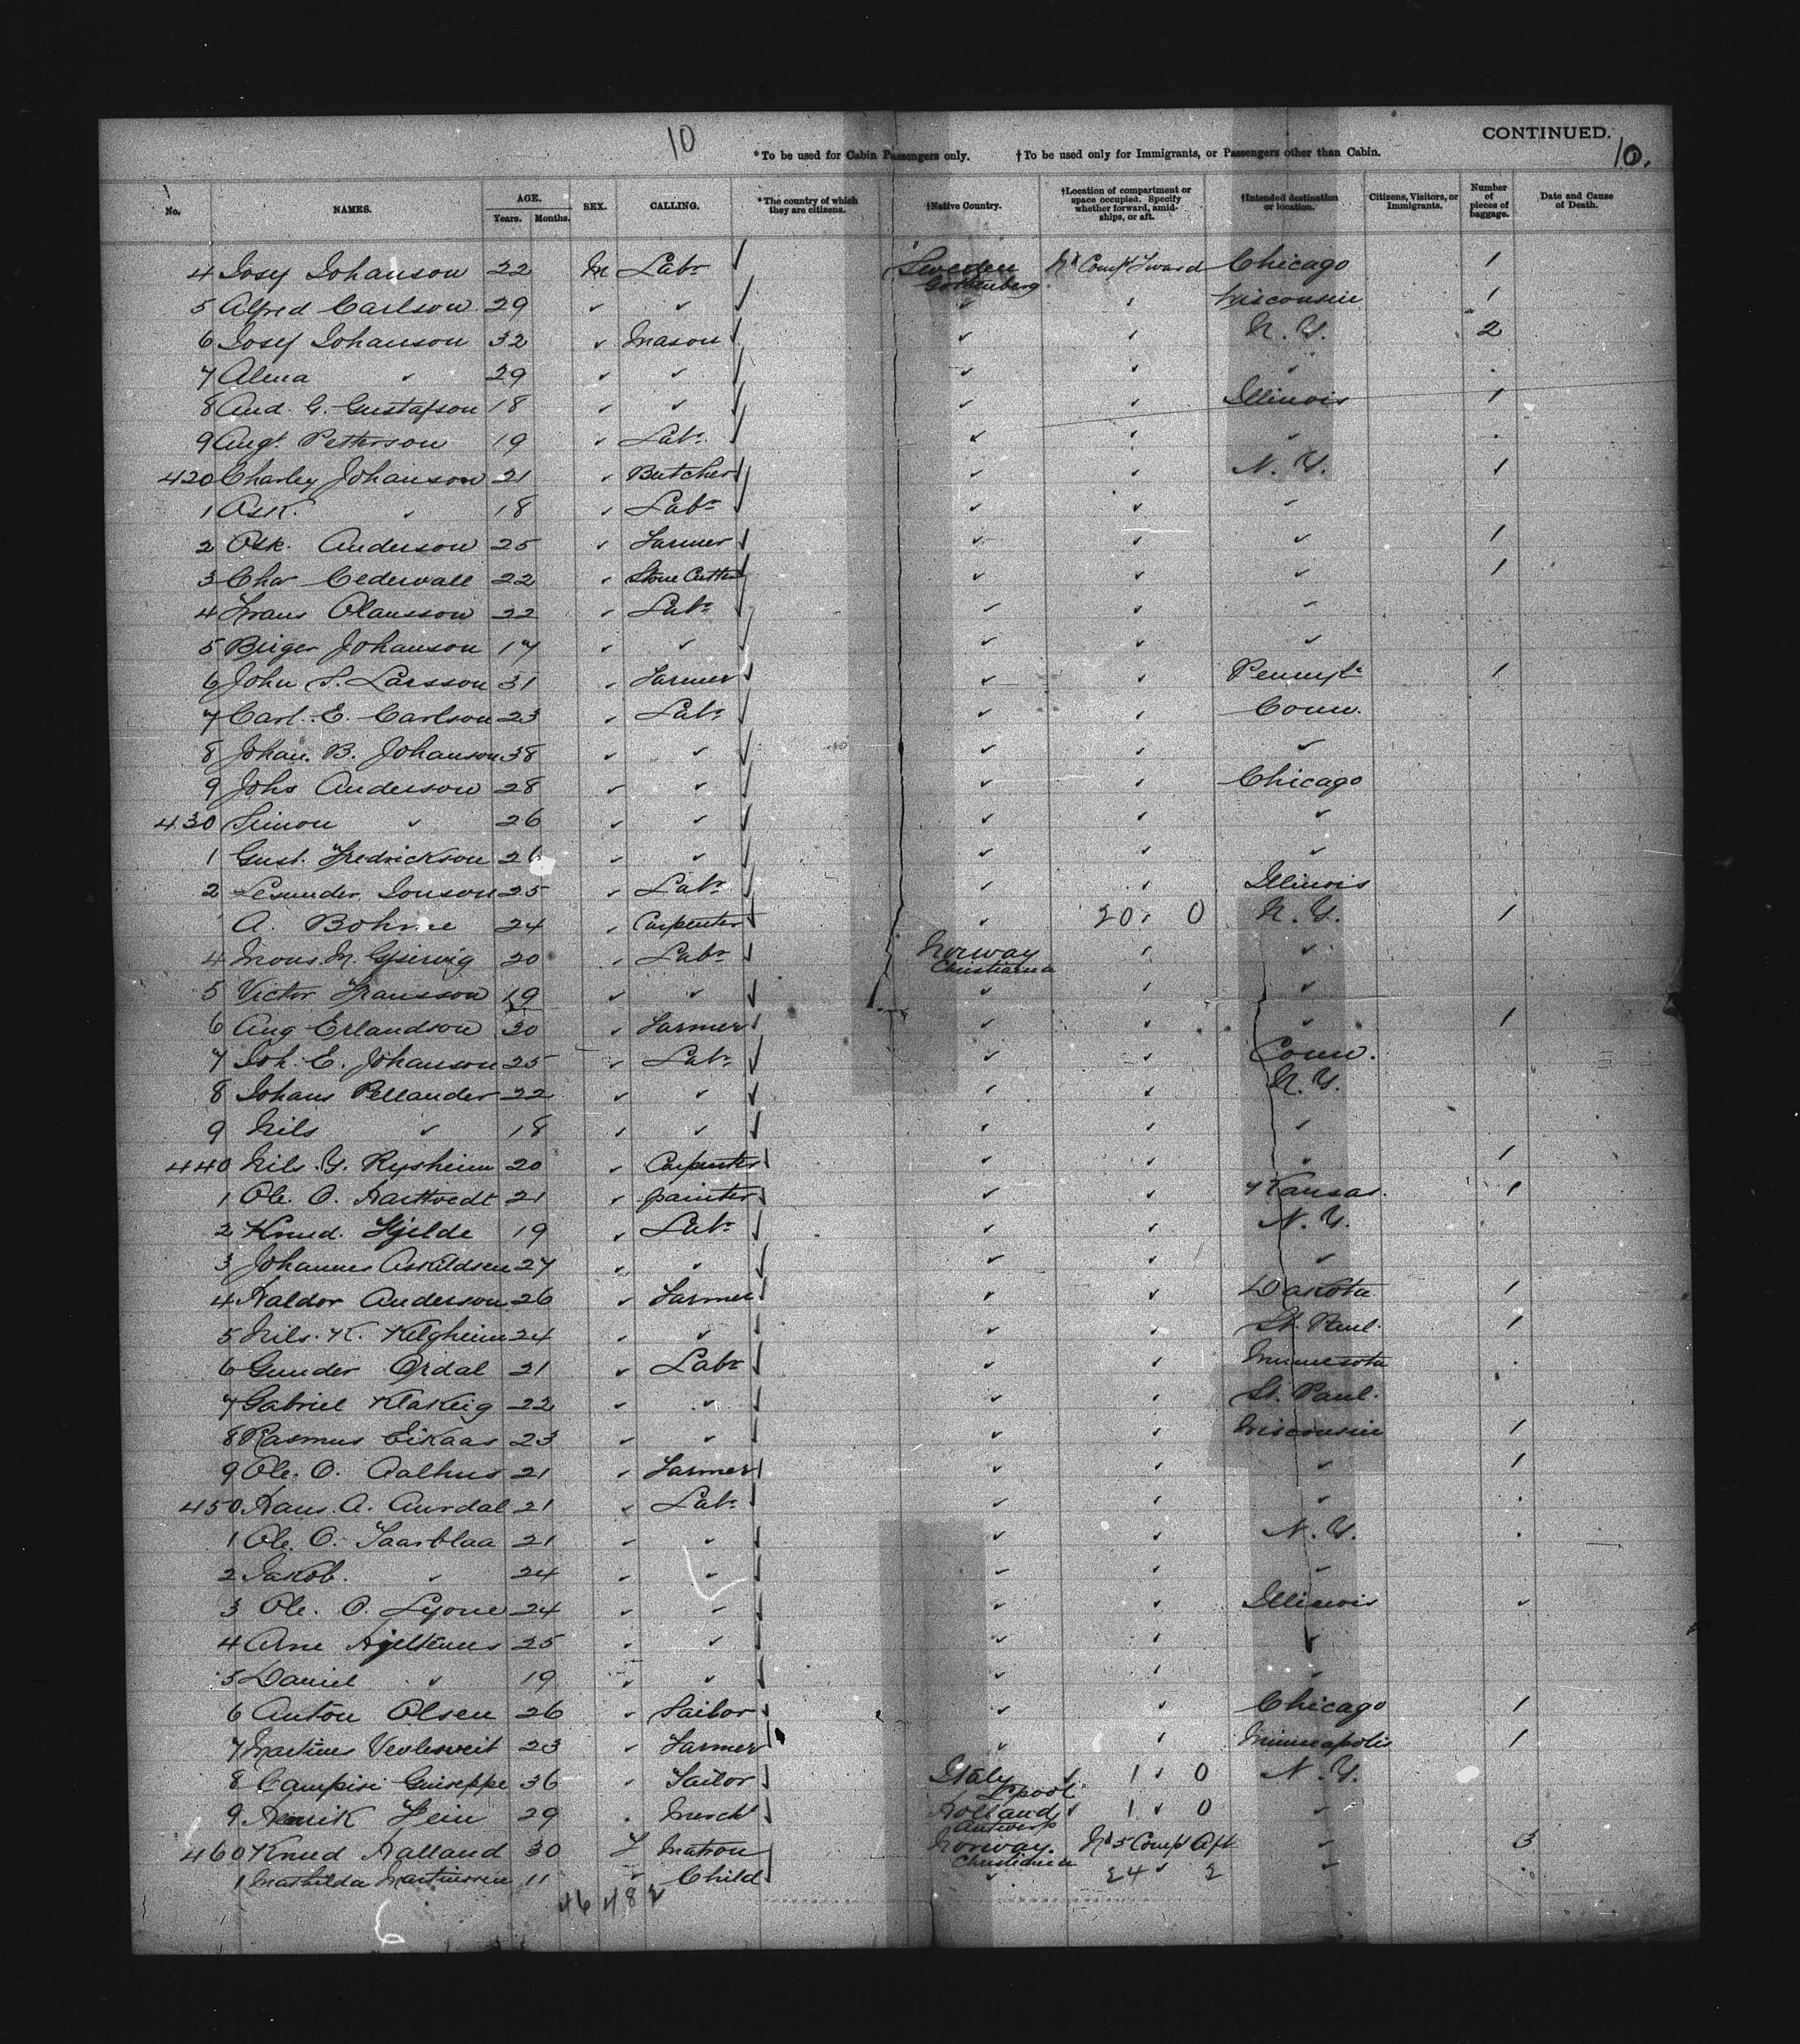 10
CONTINUED.
10.
*To be used for Cabin Passengers only. †To be used only for Immigrants, or Passengers other than Cabin.
No. NAMES. AGE. Years. Months. SEX. CALLING. *The country of which they are citizens. †Native Country. †Location of compartment or space occupied. Specify whether forward, amidships, or aft. †Intended destination or location. Citizens, Visitors, or Immigrants. Number of pieces of baggage. Date and Cause of Death.
4 Josef Johanson 22 M Labr √ Sweden Gothenberg Chicago 1
5 Alfred Carlson 29 ✓ ✓ √ ✓ ✓ Wisconsin 1
6 Josef Johanson 32 ✓ Mason √ ✓ ✓ N. Y. 2
7 Alma ✓ 29 ✓ ✓ √ ✓ ✓ ✓
8 And. G. Gustafson 18 ✓ ✓ √ ✓ ✓ Illinois 1
9 Augt Petterson 19 ✓ Labr √ ✓ ✓ ✓
420 Charley Johanson 21 ✓ Butcher √ ✓ ✓ N. Y. 1
1 Osk. ✓ 18 ✓ Labr √ ✓ ✓ ✓
2 Osk. Anderson 25 ✓ Farmer √ ✓ ✓ ✓ 1
3 Char Cedervall 22 ✓ Stone Cutter √ ✓ ✓ ✓ 1
4 Frans Olausson 22 ✓ Labr √ ✓ ✓ ✓
5 Birger Johanson 17 ✓ ✓ √ ✓ ✓ ✓
6 John S. Larsson 31 ✓ Farmer √ ✓ ✓ Pennyla 1
7 Carl. E. Carlson 23 ✓ Labr √ ✓ ✓ Conn.
8 Johan. B. Johanson 38 ✓ ✓ √ ✓ ✓ ✓
9 Johs Anderson 28 ✓ ✓ √ ✓ ✓ Chicago
430 Simon ✓ 26 ✓ ✓ √ ✓ ✓ ✓
1 Gust. Fredrickson 26 ✓ ✓ √ ✓ ✓ ✓
2 Jonson 25 ✓ Labr √ ✓ ✓ Illinois
A. Bohme 24 ✓ Carpenter √ ✓ 20 ✓ 0 N. Y. 1
4 Mons. N. 20 ✓ Labr √ Norway Christiania ✓ ✓
5 Victor Fransson 19 ✓ ✓ √ ✓ ✓ ✓
6 Aug Erlandson 30 ✓ Farmer √ ✓ ✓ ✓ 1
7 Joh. E. Johanson 25 ✓ Labr √ ✓ ✓ Conn.
8 Johans Pellander 22 ✓ ✓ √ ✓ ✓ N. Y.
9 Nils ✓ 18 ✓ ✓ √ ✓ ✓ ✓
440 Nils. G. Rysheim 20 ✓ Carpenter √ ✓ ✓ ✓ 1
1 Ole. O. Narttvedt 21 ✓ painter √ ✓ ✓ Kansas. 1
2 Knud. Hjelde 19 ✓ Labr √ ✓ ✓ N. Y.
3 Johannes Askildsen 27 ✓ ✓ √ ✓ ✓ ✓
4 Haldor Anderson 26 ✓ Farmer √ ✓ ✓ Dakota 1
5 Nils. K. Kilgheim 24 ✓ ✓ √ ✓ ✓ St. Paul. 1
6 Gunder Ordal 21 ✓ Labr √ ✓ ✓ Minnesota
7 Gabriel Klakeig 22 ✓ ✓ √ ✓ ✓ St. Paul.
8 Rasmus Eikaas 23 ✓ ✓ √ ✓ ✓ Wisconsin 1
9 Ole. O. Aalhus 21 ✓ Farmer √ ✓ ✓ ✓ 1
450 Hans. A. Aurdal 21 ✓ Labr √ ✓ ✓ ✓
1 Ole. O. 21 ✓ ✓ √ ✓ ✓ N. Y.
2 Jakob. ✓ 24 ✓ ✓ √ ✓ ✓ ✓
3 Ole. O. Lyone 24 ✓ ✓ √ ✓ ✓ Illinois ✓
4 Arne 25 ✓ ✓ √ ✓ ✓ ✓
5 Daniel ✓ 19 ✓ ✓ √ ✓ ✓ ✓
6 Anton Olsen 26 ✓ Sailor √ ✓ ✓ Chicago 1
7 Martius 23 ✓ Farmer √ ✓ ✓ Minneapolis 1
8 Campisi Guiseppe 36 ✓ Tailor √ Italy L'pool ✓ 1 ✓ 0 N. Y.
9 Henrik Hein 29 ✓ Mercht √ Holland Antwerp ✓ 1 ✓ 0 ✓
460 Knud Halland 30 F Matron √ Norway. Christiania No 5 Compt Aft ✓ 3
1 Mathilda Martinssen 11 ✓ Child √ ✓ 24 ✓ 2 ✓
46 48 2
6